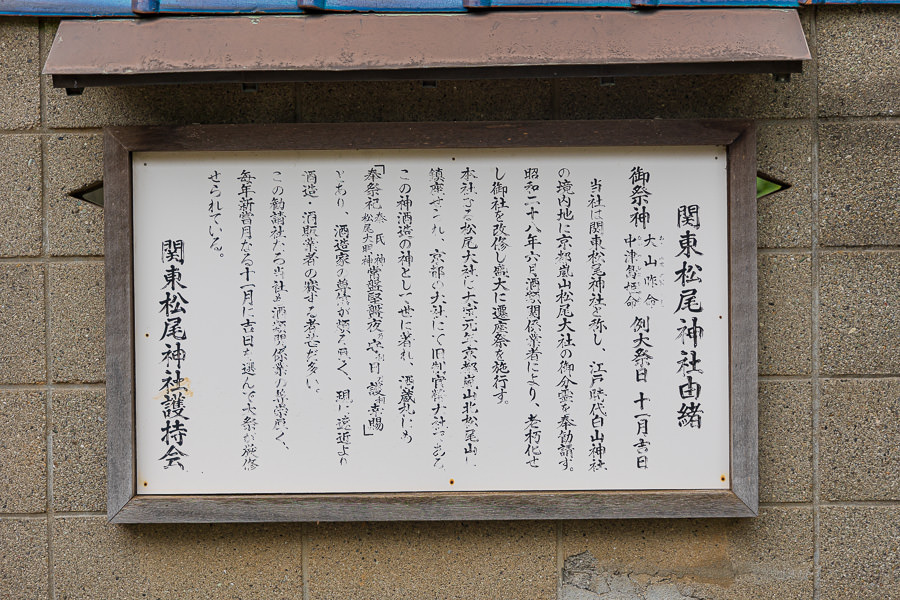 関東松尾神社由緒
御祭神 大山咋命 中津島姫命 例大祭日 十一月吉日
当社は関東松尾神社と称し、江戸時代白山神社
の境内地に京都嵐山松尾大社の御分霊を奉勧請す。
昭和二十八年六月酒類関係業者により、老朽化せ
し御社を改修し盛大に遷座祭を施行す。
本社なる松尾大社は大宝元年京都嵐山北松尾山に
鎮座され、京都の大社にて旧制官幣大社である。
この神酒造の神として世に著れ、酒蔵札にも
「奉祭祀 秦氏神 松尾大明神 常盤堅磐夜 守日 護幸賜」
とあり、酒造家の尊崇が頗る凩く、現に遠近より
酒造・酒販業者の賽する者甚だ多い。
この勧請社たる当社も酒類関係業の尊崇凩く、
毎年新嘗月なる十一月に吉日を選んで大祭が施修
せられている。
関東松尾神社護持会